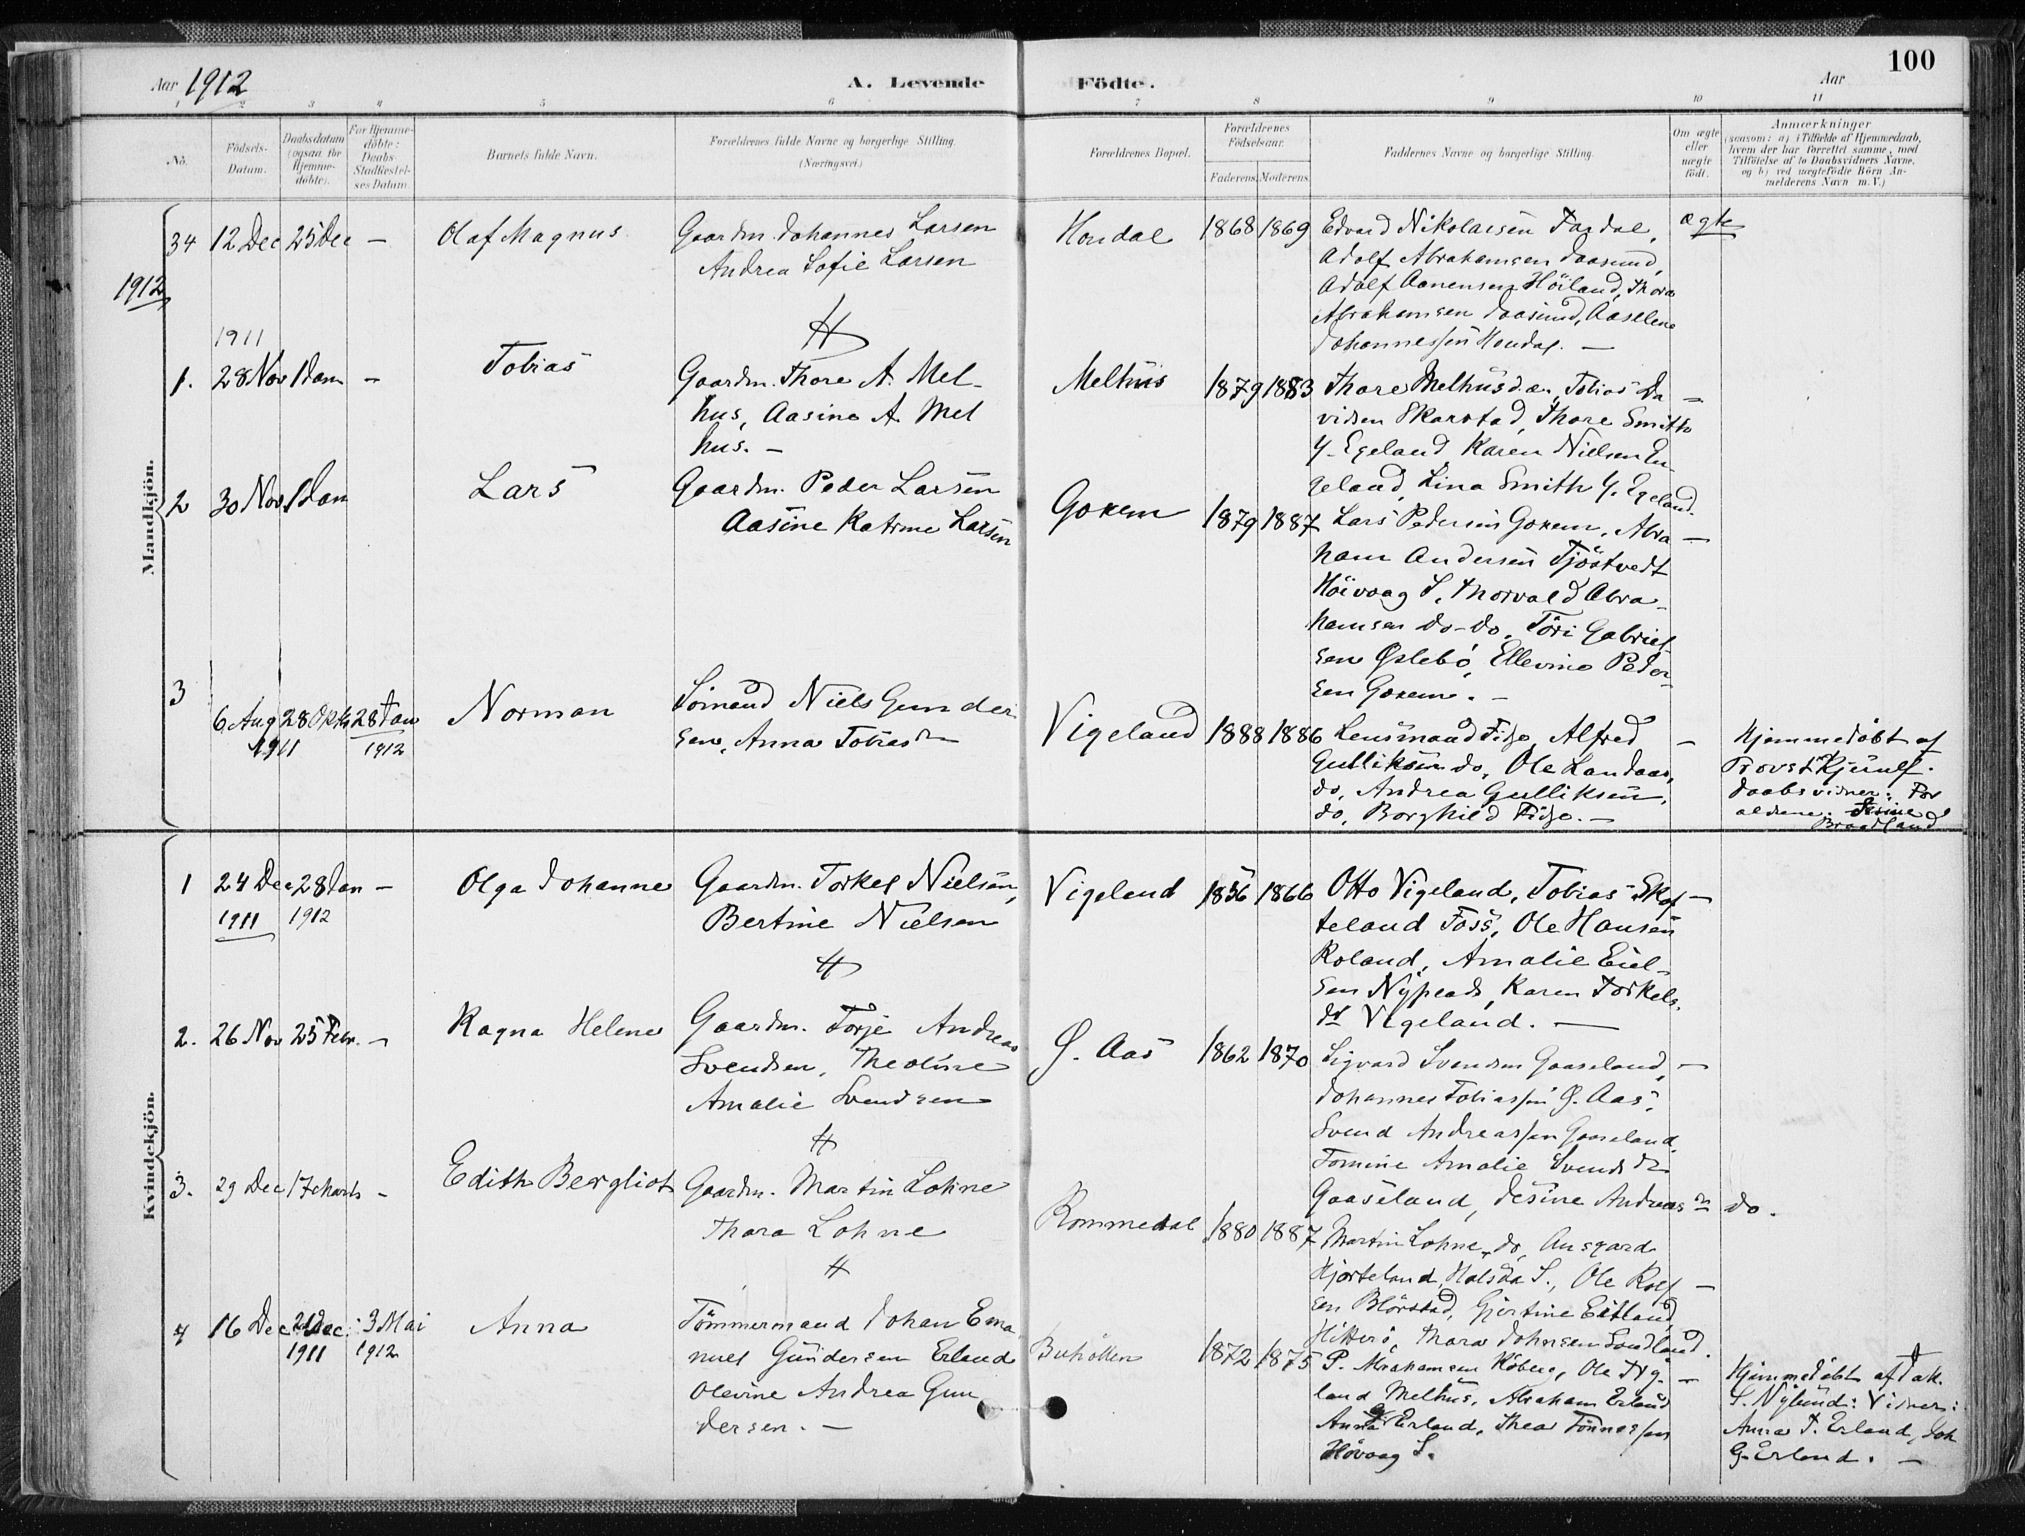 Aar 1912
A. Levende
Födte.
Aar
100
1 2 3 4 5 6 7 8 9 10 11
No.
Födsels-
Datum.
Daabsdatum
(ogsaa for
Hjemme-
döbte).
For Hjemme-
döbte:
Daabs-
Stadfæstel-
ses Datum.
Barnets fulde Navn.
Forældrenes fulde Navne og borgerlige Stilling.
(Næringsvei.)
Forældrenes Bopæl.
Forældrenes
Födselsaar.
Faderens. Moderens.
Faddernes Navne og borgerlige Stilling.
Om ægte
eller
uægte
födt.
Anmærkninger
(saasom: a) i Tilfælde af Hjemmedaab,
hvem der har forrettet samme, med
Tilföielse af to Daabsvidners Navne,
og b) ved uægtefödte Börn An-
melderens Navn m. V.)
Mandkjön.
34 12 Dec 25 Dec – Olaf Magnus
Gaardm. Johannes Larsen
Andrea Sofie Larsen
Hondal 1868 1869
Edvard Nikolaisen Fardal,
Adolf Abrahamsen Daasund,
Adolf Aanensen Höiland, Thora
Abrahamsen Daasund, Aaselene
Johannessen Hondal. –
ægte
1912
1911
1. 28 Nov 1 Jan – Tobias
Gaardm. Thore A. Mel-
hus, Aasine A. Mel
hus. –
Melhus 1879 1883
Thore Melhus d.æ., Tobias Da
vidsen Skarstad, Thore Smith
Y. Egeland Karen Nielsen En-
geland, Lina Smith Y. Egeland.
–
2 30 Nov 1 Jan Lars
Gaardm. Peder Larsen
Aasine Katrine Larsen
Goksem 1879 1887
Lars Pedersen Goksem, Abra –
ham Andersen Tjöstvedt
Höivaag S, Thorvald Abra-
hamsen do-do, Töri Gabriel
sen Øslebö, Ellevine Peder-
sen Goksem. –
3
6 Aug 28 Okt 28 Jan
1911 1912
Norman
Sömand Niels Gunder
sen, Anna Tobiasdr
Vigeland 1888 1886
Lensmand Fidje, Alfred –
Gulliksen do, Ole Landaas,
do, Andrea Gulliksen,
do, Borghild Fidje. –
Hjemmedöbt af
Provst Kjerulf.
Daabsvidner: For
ældrene.
Braadland
Kvindekjön.
1 24 Dec 28 Jan – Olga Johanne
1911 1912
Gaardm. Torkel Nielsen,
Bertine Nielsen
Vigeland 1856 1866
Otto Vigeland, Tobias Skof –
teland Foss, Ole Hansen
Roland, Amalie Eiel-
sen Nyplads, Karen Torkels-
dr Vigeland. –
2. 26 Nov 25 Febr. – Ragna Helene
Gaardm. Torje Andreas
Svendsen, Theoline
Amalie Svendsen
Ø. Aas 1862 1870
Sigvard Svendsen Gaaseland, –
Johannes Tobiassen Ø. Aas,
Svend Andreassen Gaaseland
Tomine Amalie Svendsdr
Gaaseland, Jesine Andreasdr do.
3. 29 Dec 17 Marts – Edith Bergliot
Gaardm. Martin Lohne
Thora Lohne
Rommedal 1880 1887
Martin Lohne, do, Ansgard
Hjorteland, Halsaa S., Ole Rolf –
sen Blörstad, Gjertine Eitland,
Hitterö, Thora Johnsen Sandland.
4 16 Dec 21 Dec. 3 Mai Anna
1911 1912
Tömmermand Johan Ema
nuel Gundersen Erland
Olevine Andrea Gun
dersen. –
Buhölten 1872 1875
P. Abrahamsen Köberg, Ole Ny- –
land Melhus, Abraham Erland
Anna G. Erland, Thea Tönnessen
Hövaag S.
Hjemmedöbt af Jak.
S. Nylund: Vidner:
Anna T. Erland, Joh
G. Erland. –